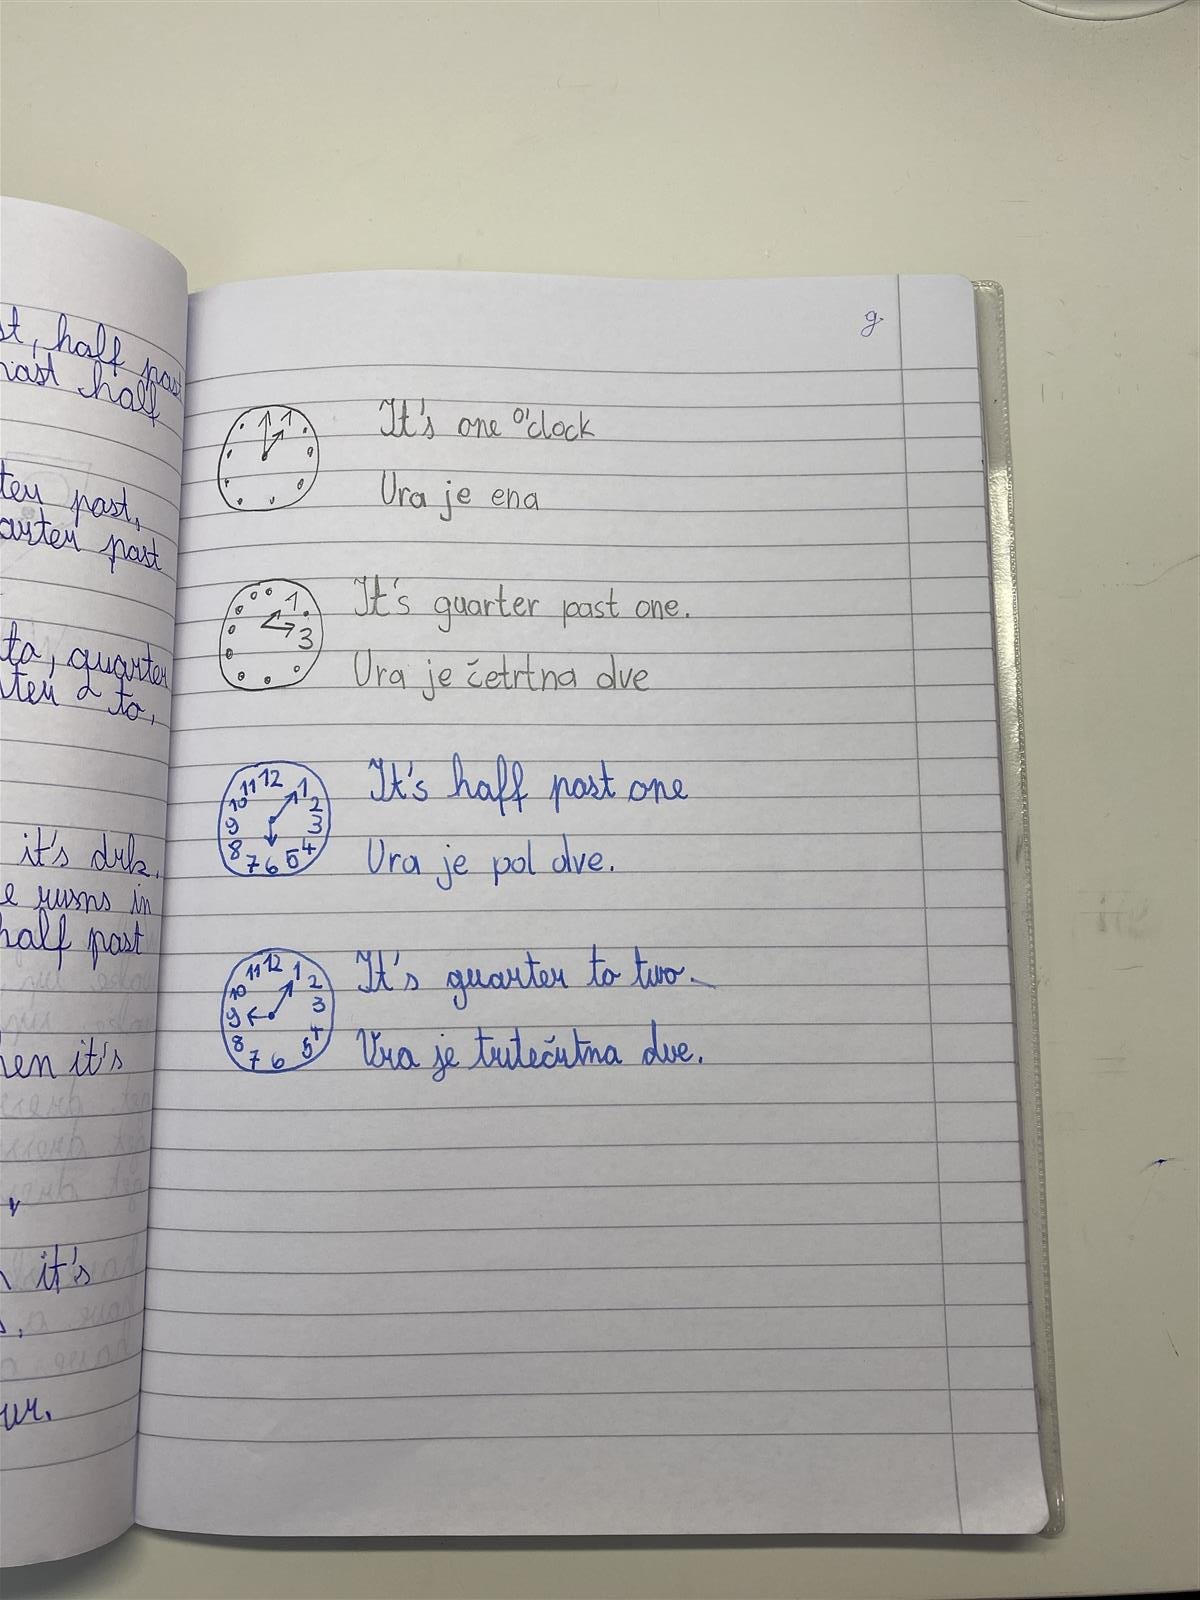 st, half past
past half
ter past,
arter past
to, quarter
ter 2 to,
it's drk.
e rusns in
half past
hen it's
it's
ur.
g.
1
It's one o'clock
Ura je ena
1
3
It's quarter past one.
Ura je četrtna dve
11 12 1
10 2
9 3
8 7 6 5 4
It's haff past one
Ura je pol dve.
11 12 1
10 2
9 3
8 7 6 5 4
It's quarter to two.
Ura je trtečrtna dve.